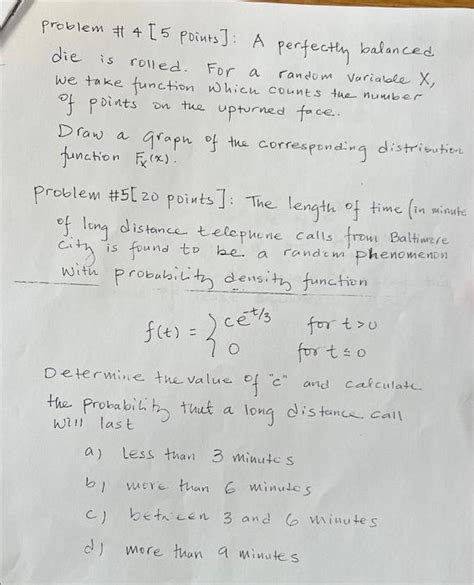 problem # 4 [5 points]: A perfectly balanced
die is rolled. For a random variable X,
we take function which counts the number
of points on the upturned face.
Draw a graph of the corresponding distribution
function Fx(x).
problem #5[20 points]: The length of time (in minute
of long distance telephone calls from Baltimore
City is found to be a random phenomenon
with probability density function
f(t) = { ce^-t/3 for t>0
0 for t≤0
Determine the value of "c" and calculate
the probability that a long distance call
will last
a) less than 3 minutes
b) more than 6 minutes
c) between 3 and 6 minutes
d) more than 9 minutes